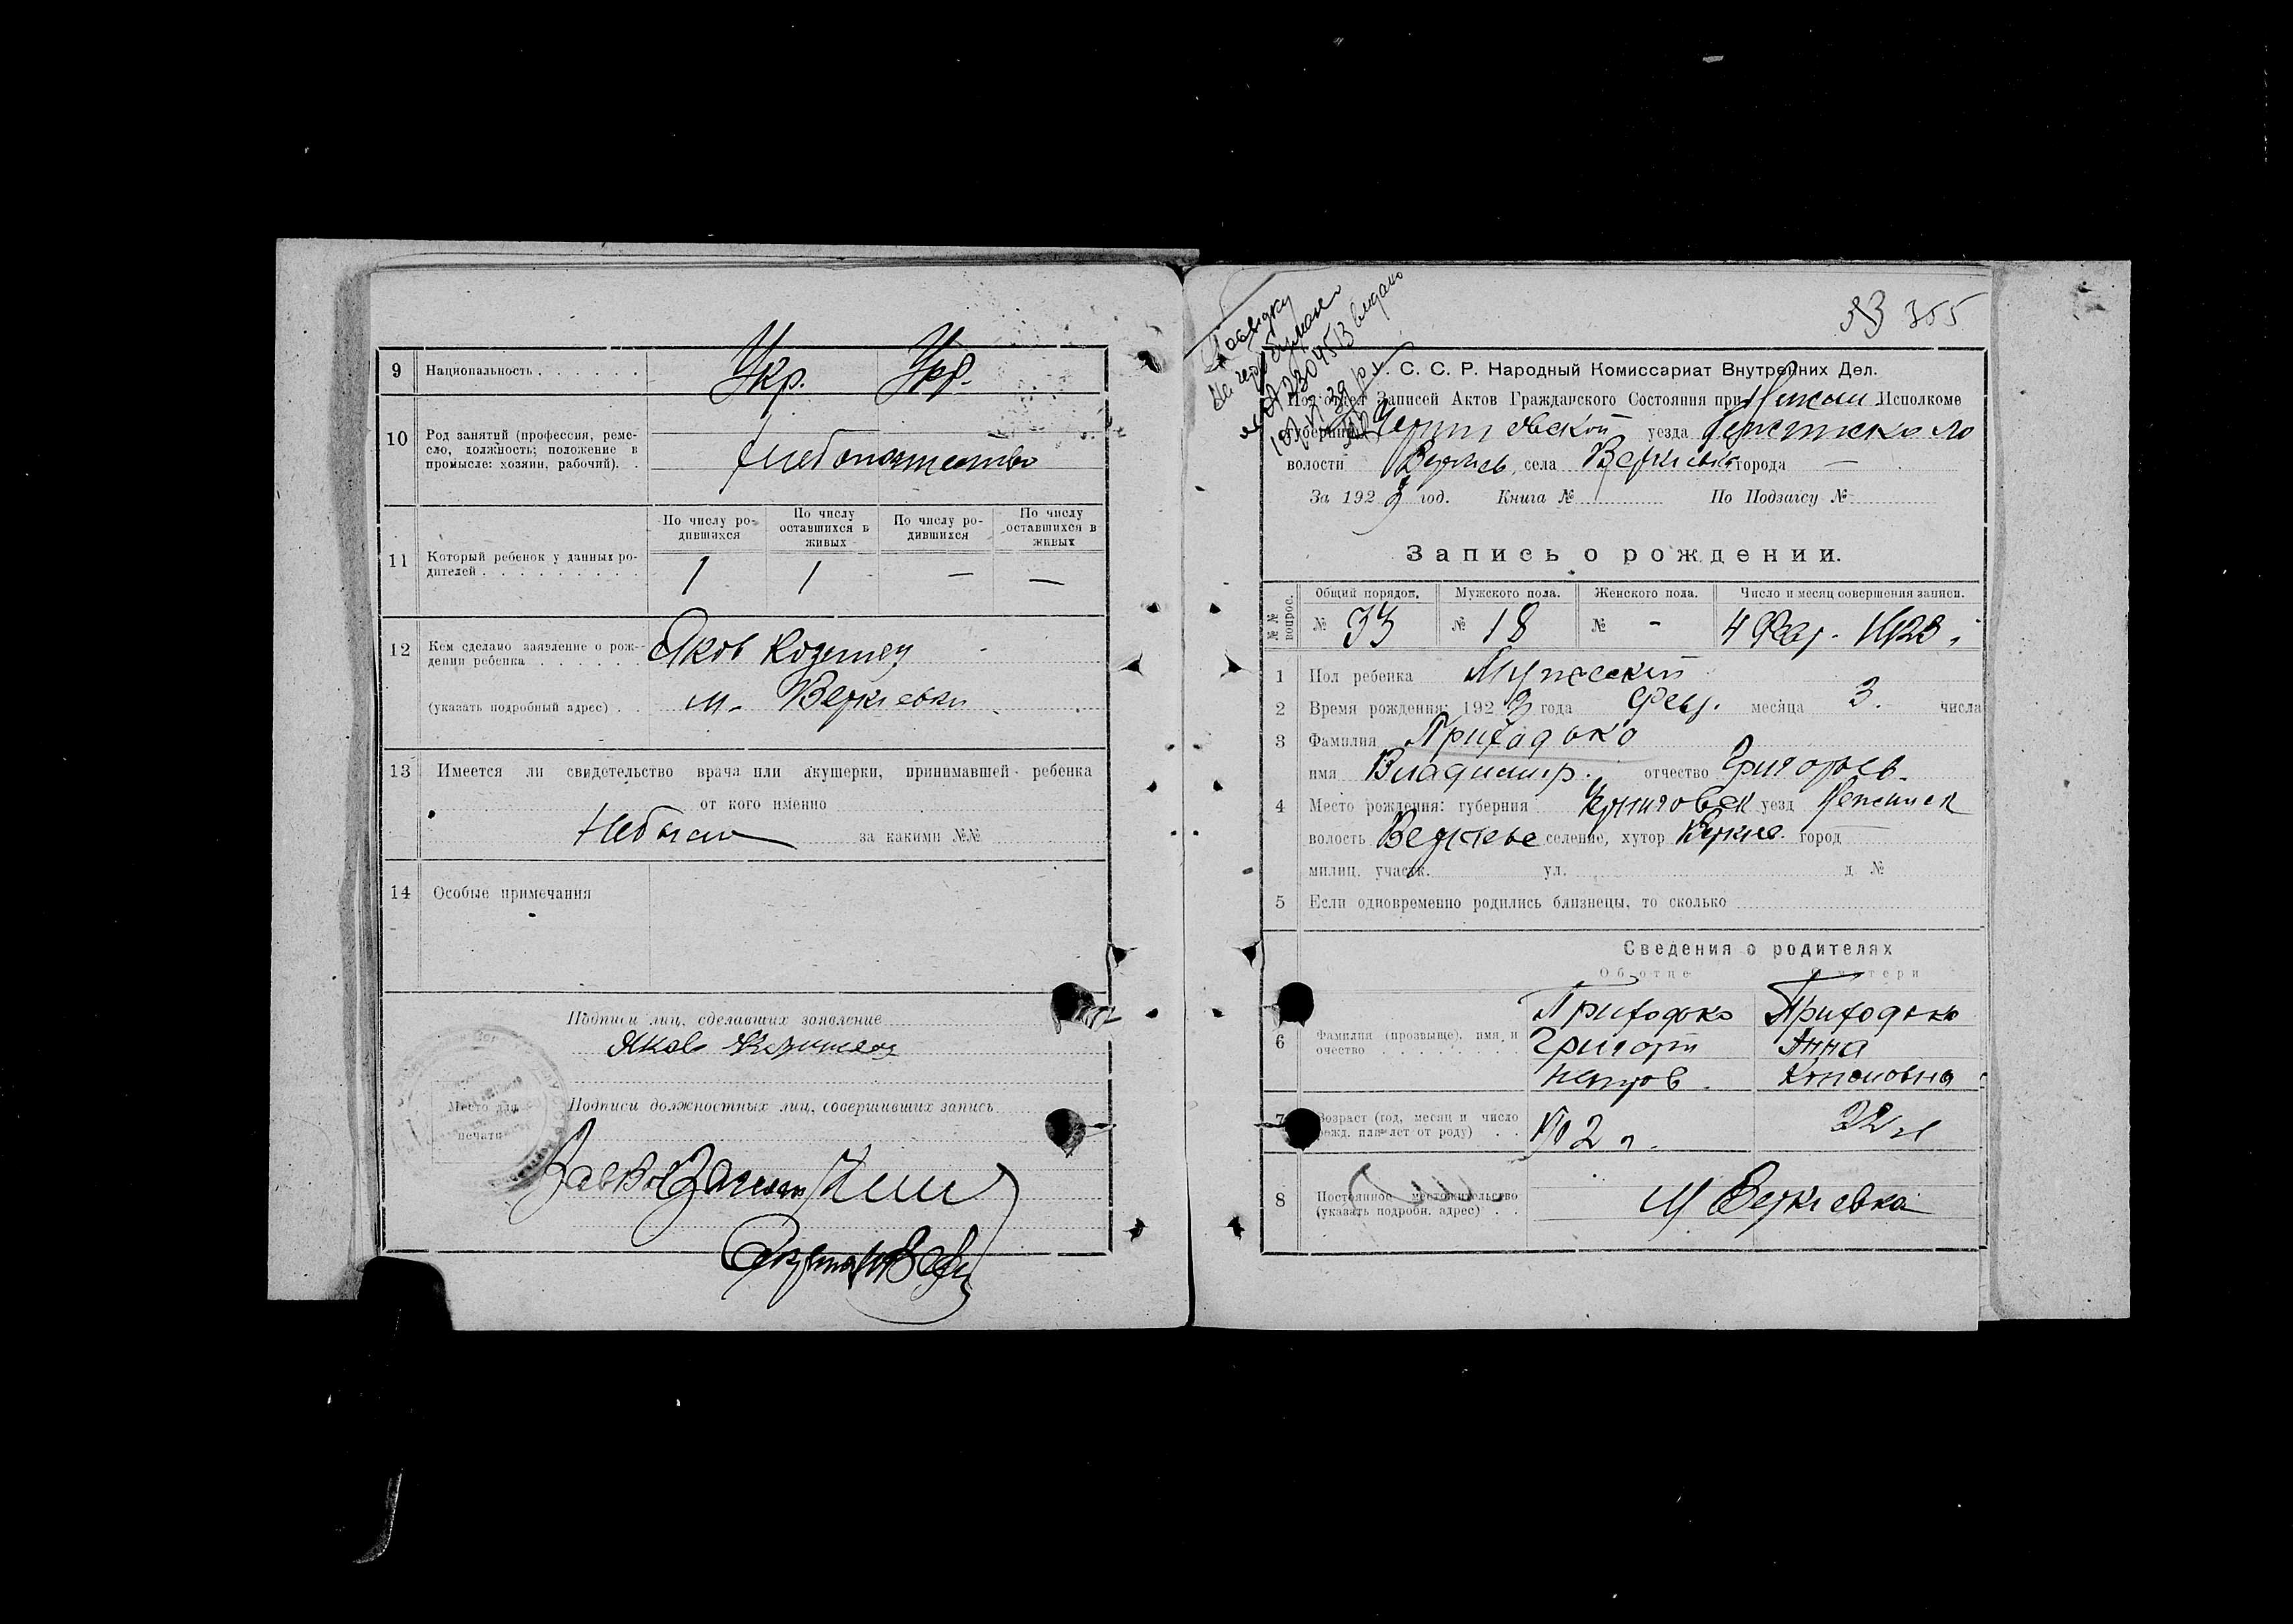 9 Национальность . . . . . . Укр. Укр.
10 Род занятий (профессия, реме-
сло, должность; положение в
промысле: хозяин, рабочий). .
хлебопашество
По числу ро-
дившихся
По числу
оставшихся в
живых
По числу ро-
дившихся
По число
оставшихся в
живых
11 Который ребенок у данных ро-
дителей . . . . . . . . . 1 1 — —
12 Кем сделано заявление о рож-
дении ребенка . . . . . . Яков
(указать подробный адрес) . . м. Веркиевки
13 Имеется ли свидетельство врача или акушерки, принимавшей ребенка
от кого именно
Небыло за какими №№
14 Особые примечания
Подписи лиц, сделавших заявление
Яков
Место для
печати
Подписи должностных лиц, совершивших запись
33 355
С. С. Р. Народный Комиссариат Внутренних Дел.
Записей Актов Гражданского Состояния при Нежин Исполкоме
Черниговской уезда Нежинского
волости Веркиев. села Веркиевка города —
За 1923 год. Книга № По Подзагсу №
Запись о рождении.
№№ вопрос.
Общий порядок. Мужского пола. Женского пола. Число и месяц совершения записи.
№ 33 № 18 № - 4 Фев. 1923
1 Пол ребенка Мужеский
2 Время рождения: 1923 года Февр. месяца 3. числа
3 Фамилия Приходько
имя Владимир. отчество Григорьев.
4 Место рождения: губерния Черниговск уезд Нежинск
волость селение, хутор Веркие. город —
милиц. участк. ул. д №
5 Если одновременно родились близнецы, то сколько
Сведения о родителях
Об отце О матери
6 Фамилия (прозвыще), имя и
очество . . . . . . . .
Приходько Приходько
Григорий Анна
Петров.
7 Возраст (год, месяц и число
рожд. или лет от роду) . .
22
8 Постоянное местожительство
(указать подробн. адрес) . .
м Веркиевка